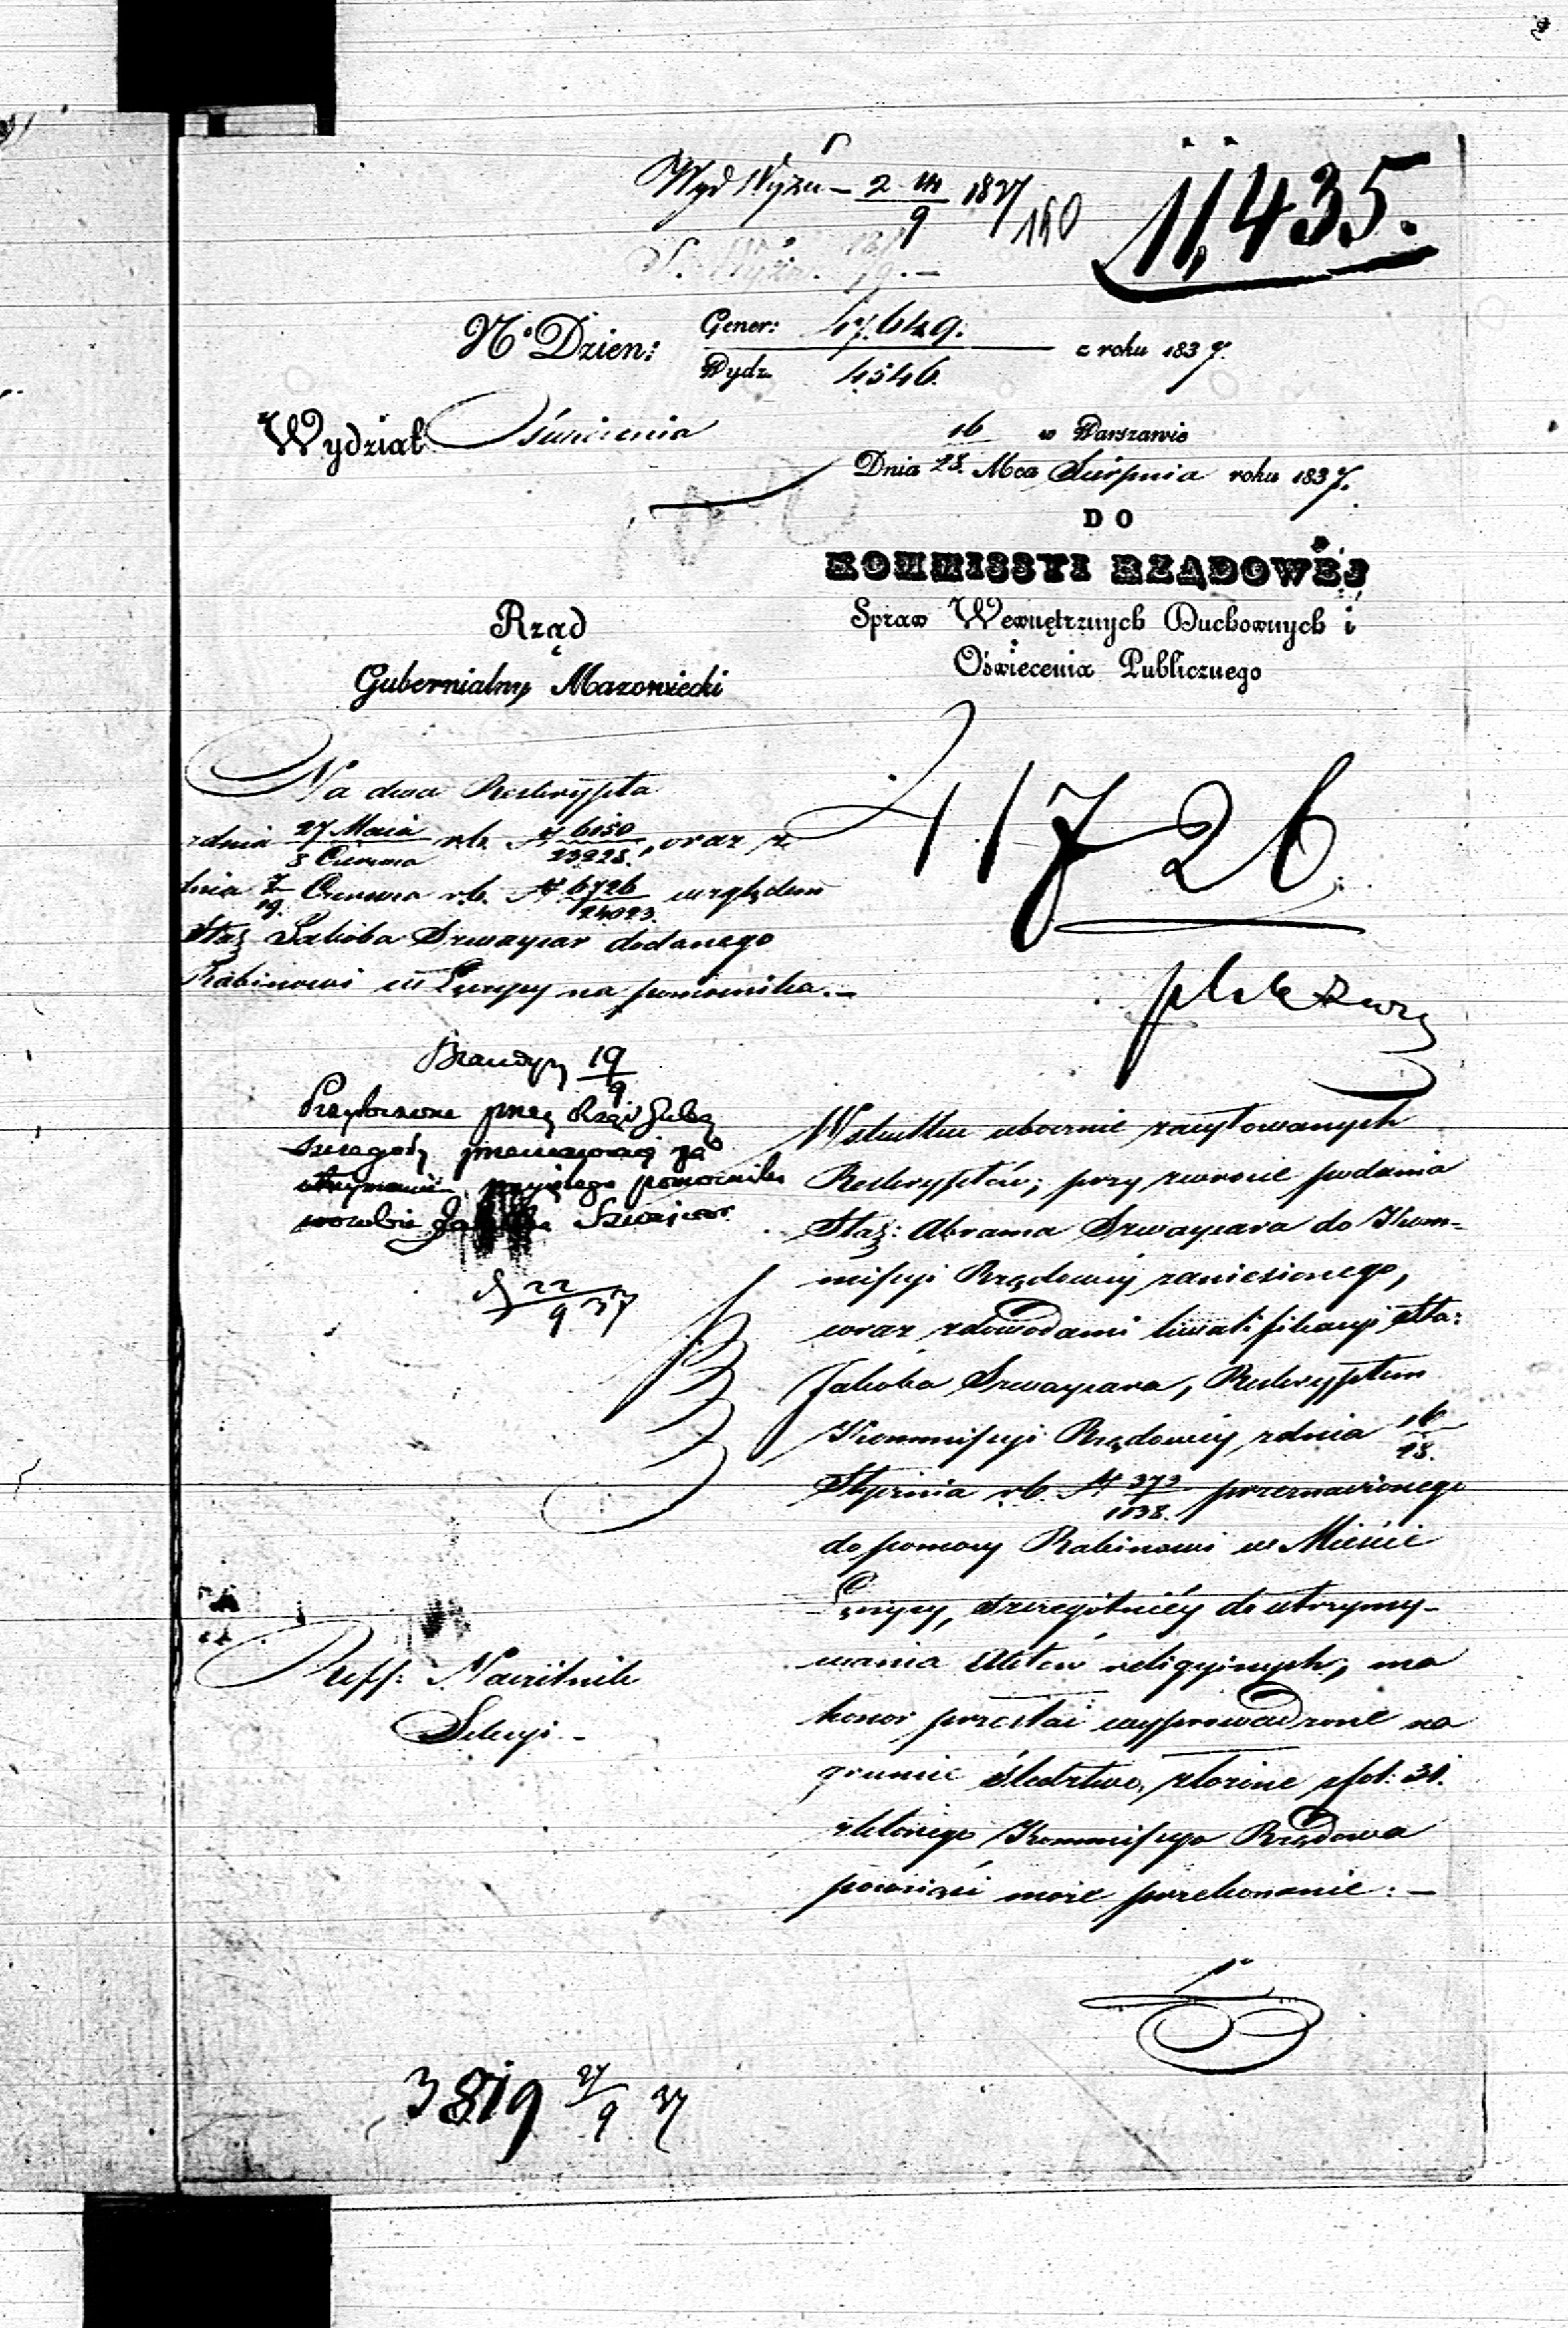 Wyd Wyzn – 2 VII/9 1837
11,435.
No Dzien: Gener: 47.649. z roku 1837.
Wydz. 4546.
Wydział Oświecenia
16 w Warszawie
Dnia 28. Mca Sierpnia roku 1837.
DO
KOMMISSYI RZĄDOWÉJ
Spraw Wewnętrznych Duchownych i
Oświecenia Publicznego
Rząd
Gubernialny Mazowiecki
Na dwa Reskrypta
z dnia 27 Maia / 8 Czerwca r.b. N 6150/23228., oraz z
dnia 7/19. Czerwca r.b. N 6726/24023. względem
Staż Jakóba Szwaycar dodanego
Rabinowi w Łęczycy na pomocnika.–
11726
19/9
Przytoczone przez Rząd Gub
szczegóły
utrzymaniem przyjętego pomocnika
w osobie Szwajcar
22/9 37
W skutku ubocznie zacytowanych
Reskryptów; przy zwrocie podania
Staż: Abrama Szwaycara do Kom-
missyi Rządowéy zaniesionego,
wraz z dowodami kwalifikacyi Sta:
Jakóba Szwaycara, Reskryptem
Kommissyi Rządowéy z dnia 16/28.
Stycznia r.b. N 373/1038. przeznaczonego
do pomocy Rabinowi w Mieście
Łęczycy, szczególniéy do utrzymy-
wania Aktów religyinych, ma
honor przesłać wyprowadzone na
gruncie śledztwo, złożone z fol: 31.
z którego Kommissya Rządowa
powziąść może przekonanie: –
Reff: Naczelnik
Sekcyi –
3819 27/9 37